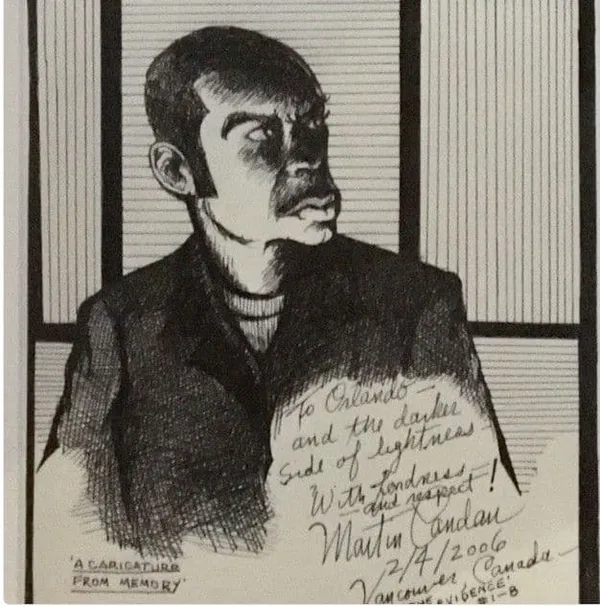 To Orlando—
and the darker
side of lightness
With fondness—
and respect!
Martin
2/4/2006
Vancouver Canada—
'A CARICATURE
FROM MEMORY'
EVIDENCE'
#1-8